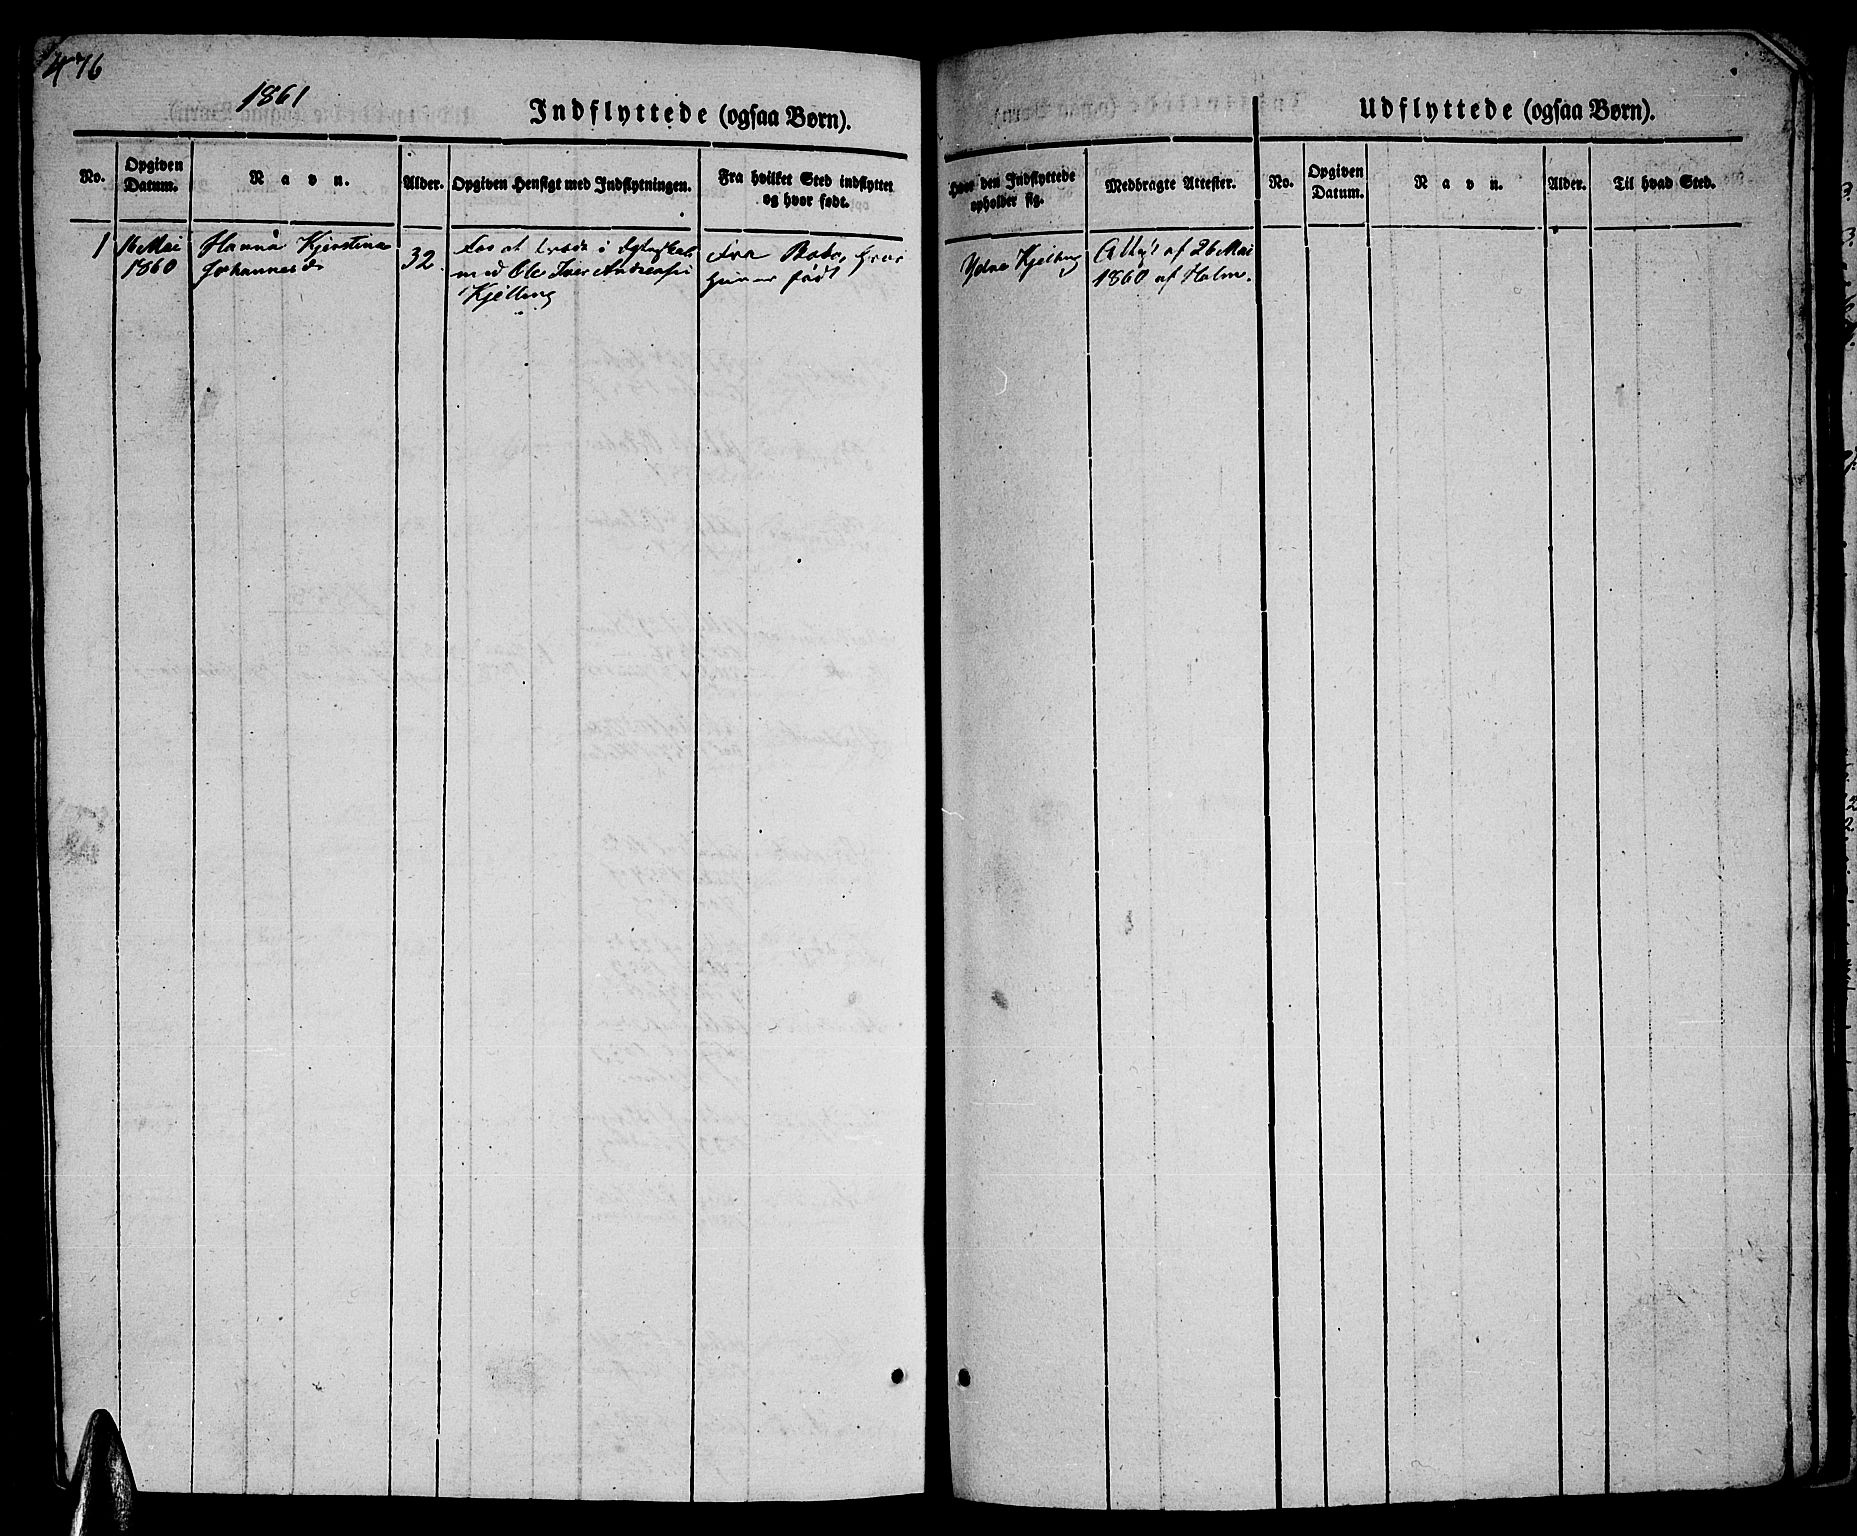 476
1861
Indflyttede (ogsaa Børn).
No.
Opgiven
Datum.
Navn.
Alder.
Opgiven Hensigt med Indflytningen.
Fra hvilket Sted indflyttet
og hvor født.
1
16 Mai
1860
Hanna Kjerstina
Johannesd
32
For at træde i Egteskab
med Ole Iver Andreassen
Kjelling
Fra Bodø, hvor
hun er født
Udflyttede (ogsaa Børn).
Hvor den Indflyttede
opholder sig.
Medbragte Attester.
No.
Opgiven
Datum.
Navn.
Alder.
Til hvad Sted.
Kjelling
Att. af 26 Mai
1860 af Holm.